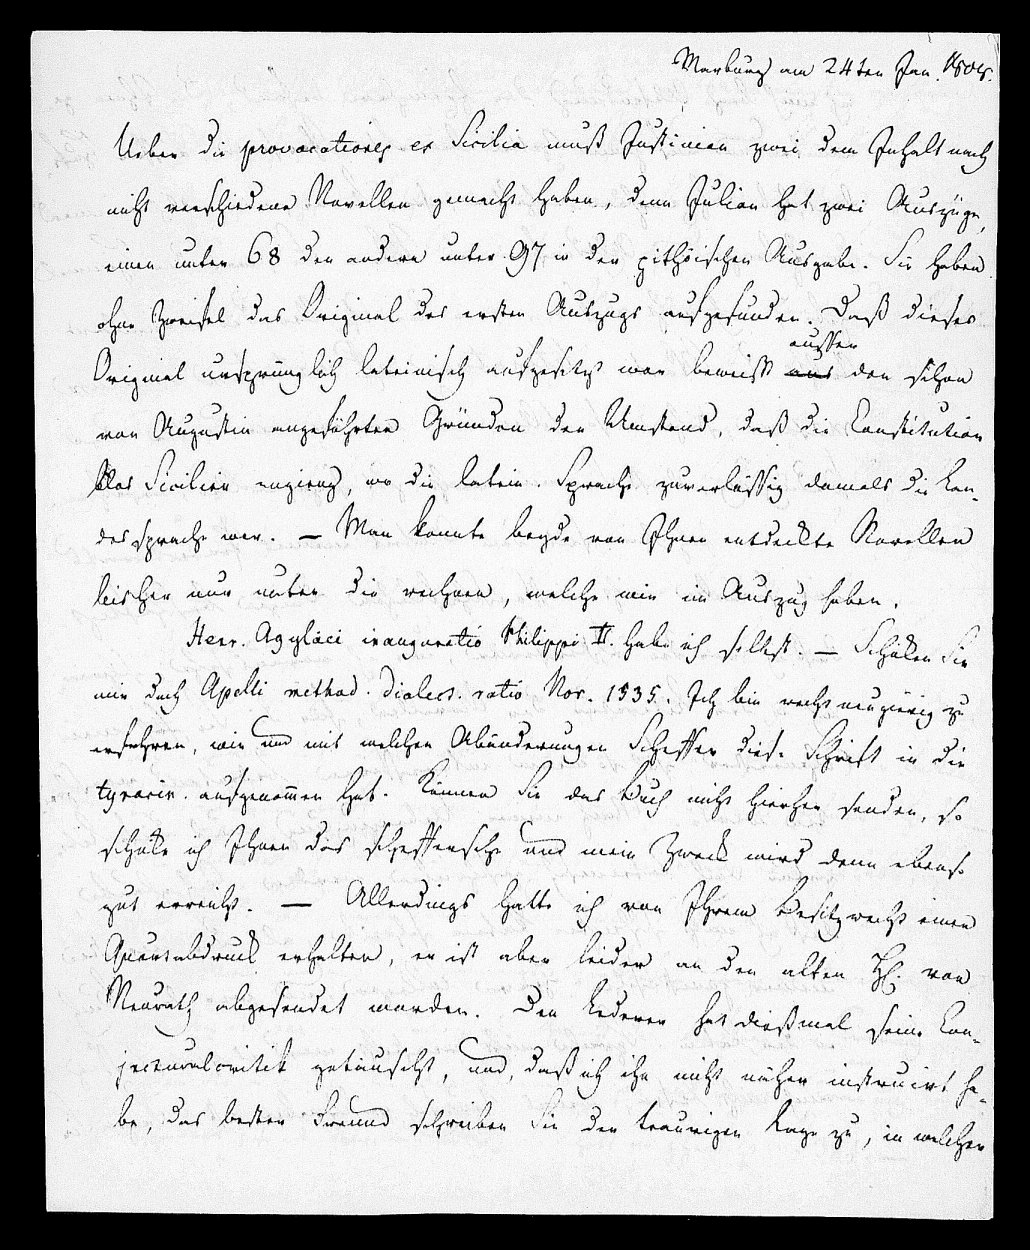 Marburg am 24ten Jan. 1804.
Ueber die provocationes ex Sicilia muß Justinian zwei dem Inhalt nach
nicht verschiedene Novellen gemacht haben, denn Julian hat zwei Auszüge,
einen unter 68 den andern unter 97 in der pithöischen Ausgabe. Sie haben
ohne Zweifel das Original des ersten Auszugs aufgefunden. Daß dieses
ausser
Original ursprünglich lateinisch aufgesetzt war beweißt aus den schon
von Augustin angeführten Gründen der Umstand, daß die Constitution
blos Sicilien angieng, wo die latein. Sprache zuverlässig damals die Lan-
dessprache war. — Man konnte beyde von Ihnen entdeckte Novellen
bisher nur unter die rechnen, welche wir im Auszug haben.
Henr. Agylaei inauguratio Philippi II. habe ich selbst. — Schicken Sie
mir doch Apelli method. dialect. ratio Nor. 1535. Ich bin recht neugierig zu
erfahren, wie und mit welchen Abänderungen Scheffer diese Schrift in die
tyrocin. aufgenommen hat. Können Sie das Buch nicht hierher senden, so
schicke ich Ihnen das scheffersche und mein Zweck wird denn ebenso
gut erreicht. — Allerdings hatte ich von Ihrem Besitzrecht einen
Quartabdruck erhalten, er ist aber leider an den alten H. von
Neurath abgesendet worden. Den Lederer hat dießmal seine Con-
jecturalcritik getäuscht, und, daß ich ihn nicht näher instruirt ha-
be, das besten Freund schreiben Sie der traurigen Lage zu, in welcher